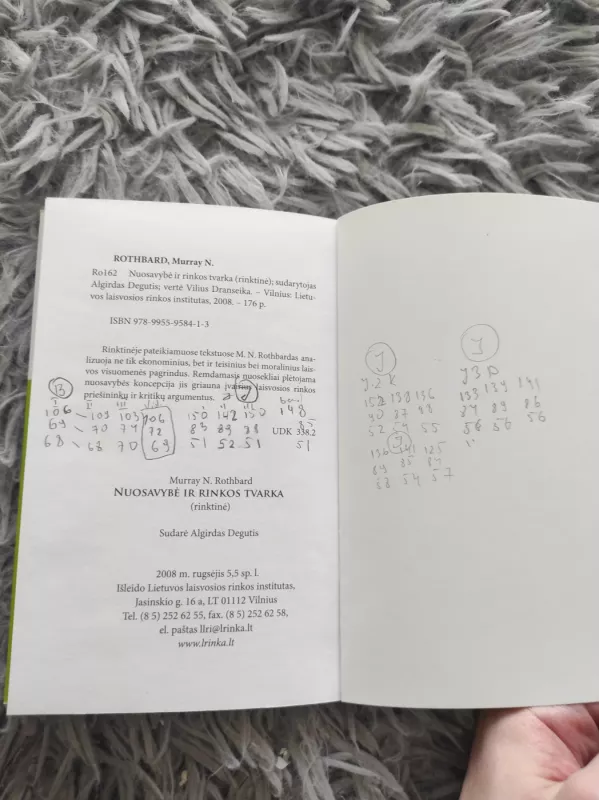 ROTHBARD, Murray N.
Ro162 Nuosavybė ir rinkos tvarka (rinktinė); sudarytojas
Algirdas Degutis; vertė Vilius Dranseika. – Vilnius: Lietu-
vos laisvosios rinkos institutas, 2008. – 176 p.
ISBN 978-9955-9584-1-3
Rinktinėje pateikiamuose tekstuose M. N. Rothbardas ana-
lizuoja ne tik ekonominius, bet ir teisinius bei moralinius lais-
vos visuomenės pagrindus. Remdamasis nuosekliai plėtojama
nuosavybės koncepcija jis griauna įvairius laisvosios rinkos
priešininkų ir kritikų argumentus.
B
I II III
106 103 103 106 150 142 150 148
69 70 71 72 83 89 88 85
UDK 338.2
68 68 70 69 51 52 51 51
Murray N. Rothbard
NUOSAVYBĖ IR RINKOS TVARKA
(rinktinė)
Sudarė Algirdas Degutis
2008 m. rugsėjis 5,5 sp. l.
Išleido Lietuvos laisvosios rinkos institutas,
Jasinskio g. 16 a, LT 01112 Vilnius
Tel. (8 5) 252 62 55, fax. (8 5) 252 62 58,
el. paštas llri@lrinka.lt
www.lrinka.lt
J
138 136
90 87 88
52 54 55
136 141 125
69 85 87
53 54 57
J
133 139 141
87 89 86
56 56 56